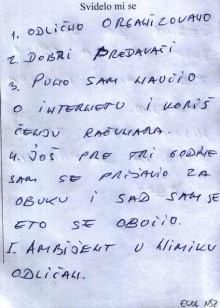 Svidelo mi se
1. ODLIČNO ORGANIZOVANO
2. DOBRI PREDAVAČI
3. PUNO SAM NAUČIO
O INTERNETU I KORIŠ
ĆENJU RAČUNARA.
4. JOŠ PRE TRI GODINE
SAM SE PRIJAVIO ZA
OBUKU I SAD SAM SE
ETO SE OBUČIO.
5. AMBIJENT U
ODLIČAN.